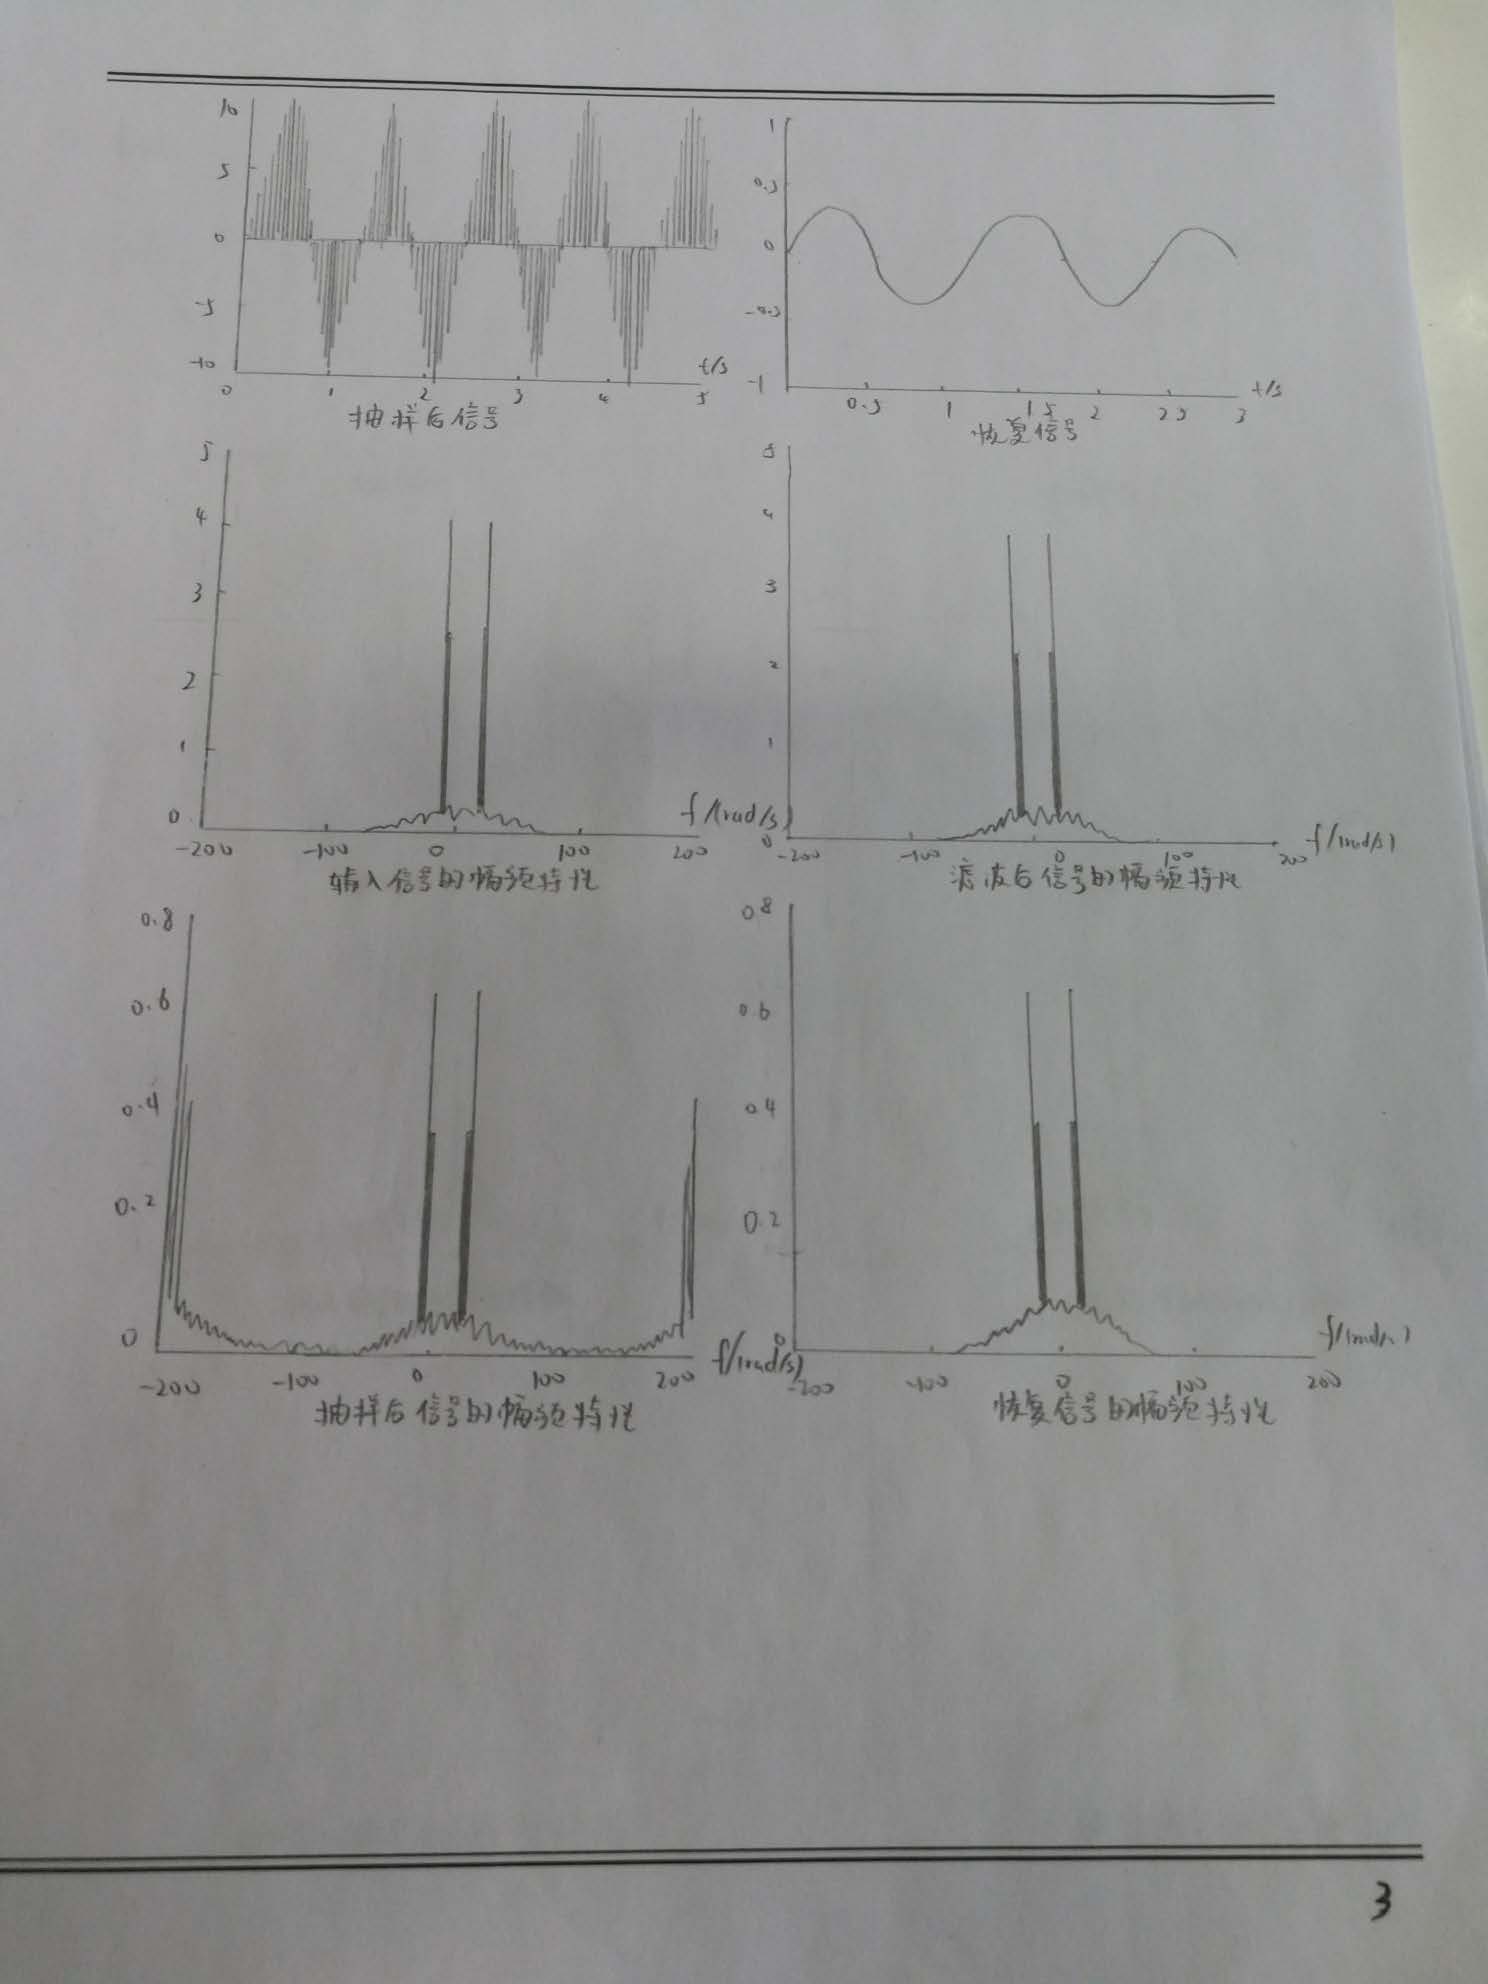 10
5
0
-5
-10
0 1 2 3 4 5
t/s
抽样后信号
1
0.5
0
-0.5
-1
0.5 1 1.5 2 2.5 3
t/s
恢复信号
5
4
3
2
1
0
-200 -100 0 100 200
f/(rad/s)
输入信号的幅频特性
5
4
3
2
1
0
-200 -100 0 100 200
f/(rad/s)
滤波后信号的幅频特性
0.8
0.6
0.4
0.2
0
-200 -100 0 100 200
f/(rad/s)
抽样后信号的幅频特性
0.8
0.6
0.4
0.2
0
-200 -100 0 100 200
f/(rad/s)
恢复信号的幅频特性
3